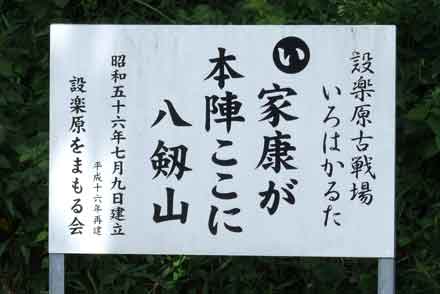 設楽原古戦場
いろはかるた
い
家康が
本陣ここに
八剱山
昭和五十六年七月九日建立
平成十六年再建
設楽原をまもる会